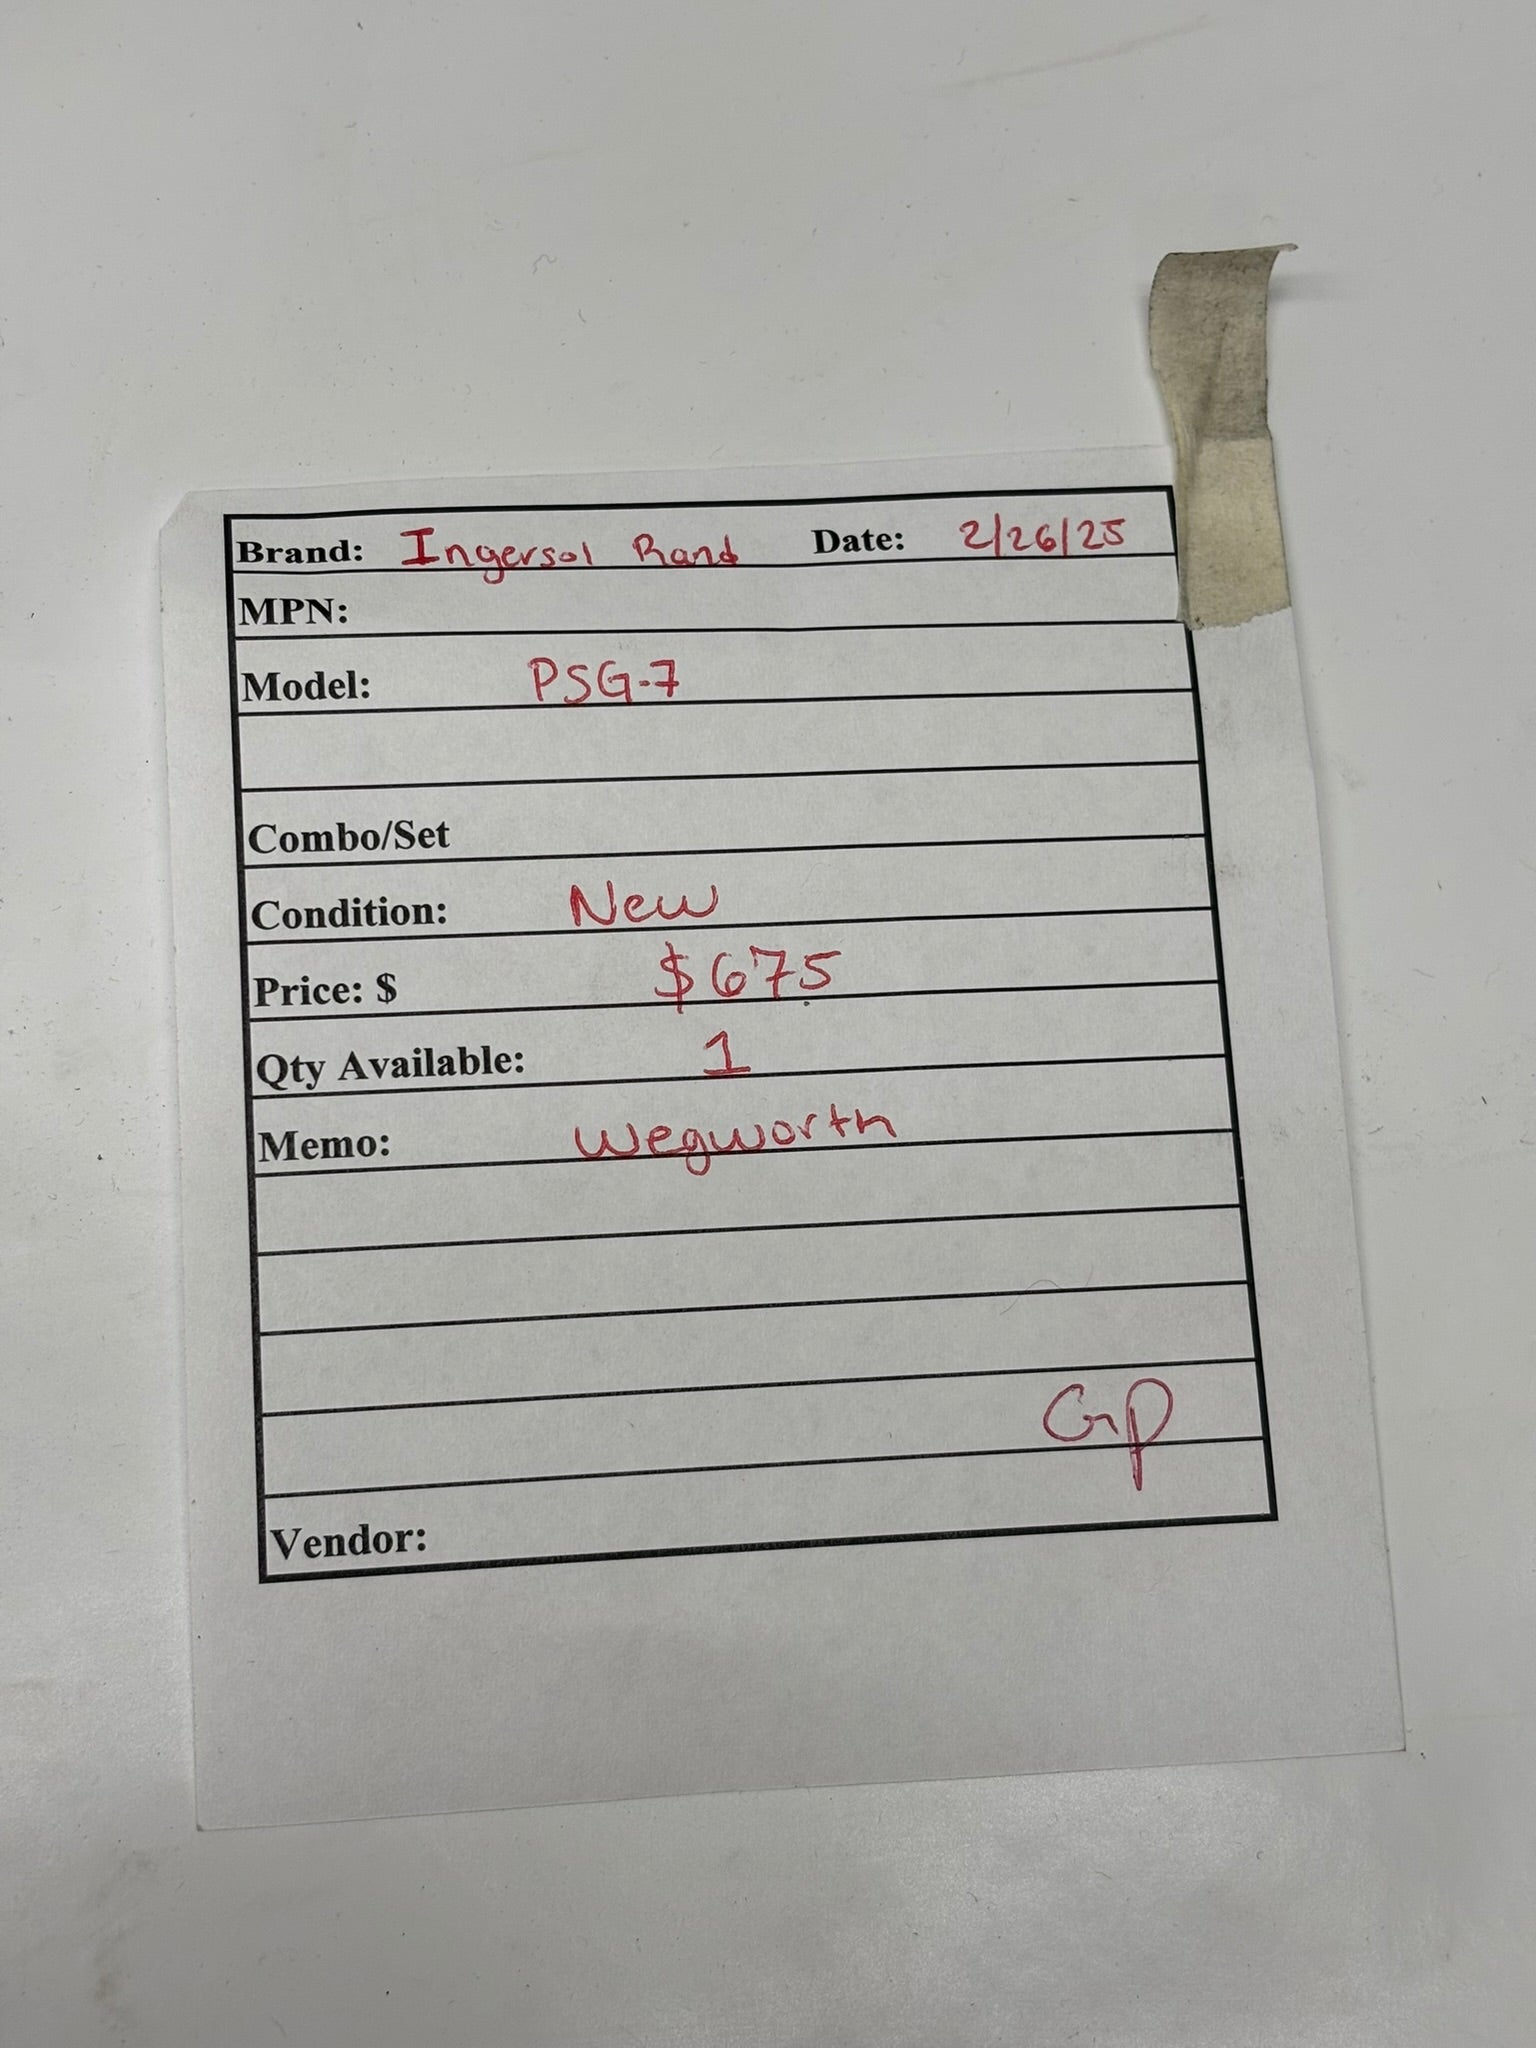 Brand: Ingersol Rand Date: 2/26/25
MPN:
Model: PSG-7
Combo/Set
Condition: New
Price: $ $675
Qty Available: 1
Memo: Wegworth
GP
Vendor: